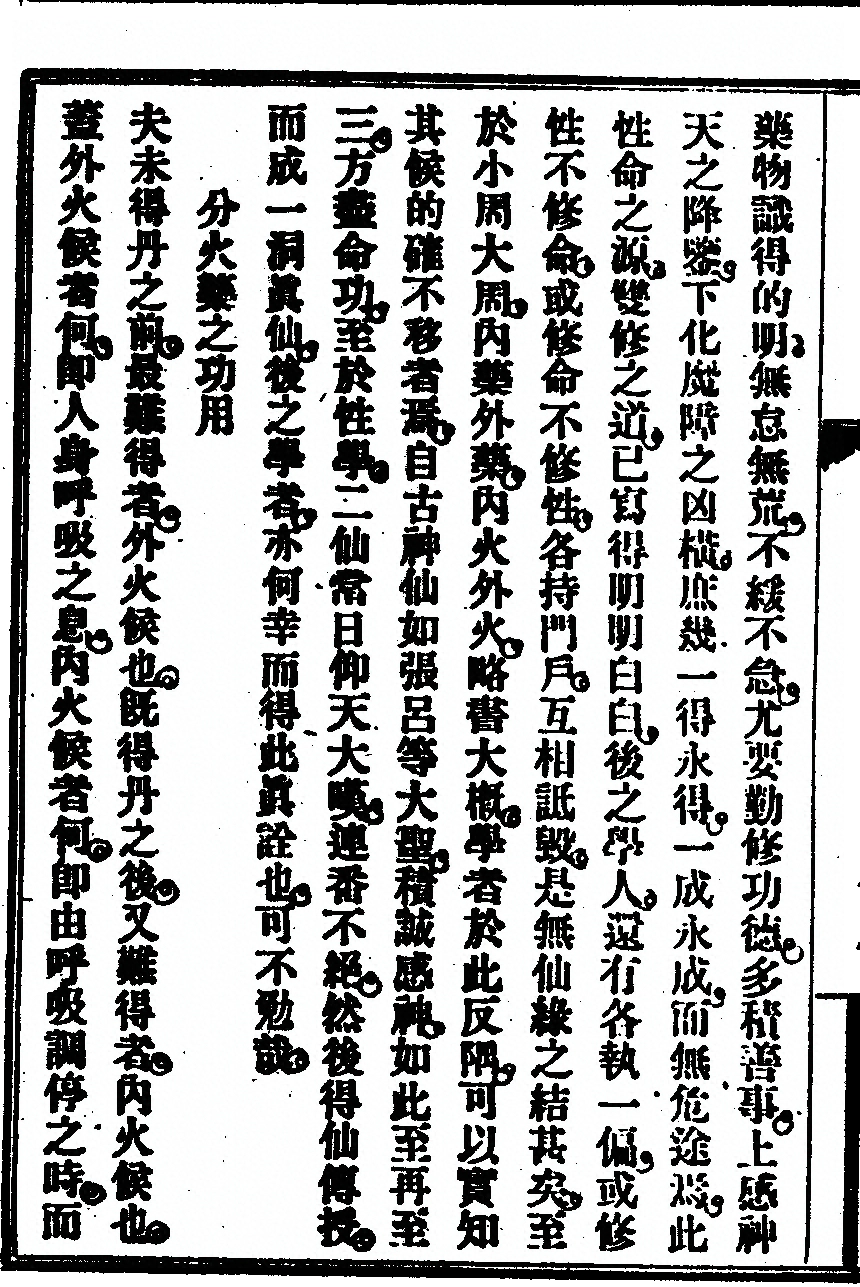 藥物識得的明。無怠無荒。不緩不急。尤要勤修功德。多積善事。上感神
天之降鑒。下化魔障之凶橫。庶幾一得永得。一成永成。而無危途焉。此
性命之源。雙修之道。已寫得明明白白。後之學人。還有各執一偏。或修
性不修命。或修命不修性。各持門戶。互相詆毀。是無仙緣之結甚矣。至
於小周大周。內藥外藥。內火外火。略書大概。學者於此反隅。可以實知
其候的確不移者焉。自古神仙如張呂等大聖。積誠感神。如此至再至
三。方盡命功。至於性學。二仙常日仰天大嘆。連番不絕。然後得仙傳授。
而成一洞眞仙。後之學者。亦何幸而得此眞詮也。可不勉哉。
分火藥之功用
夫未得丹之前。最難得者。外火候也。既得丹之後。又難得者。內火候也。
蓋外火候者何。卽人身呼吸之息。內火候者何。卽由呼吸調停之時。而